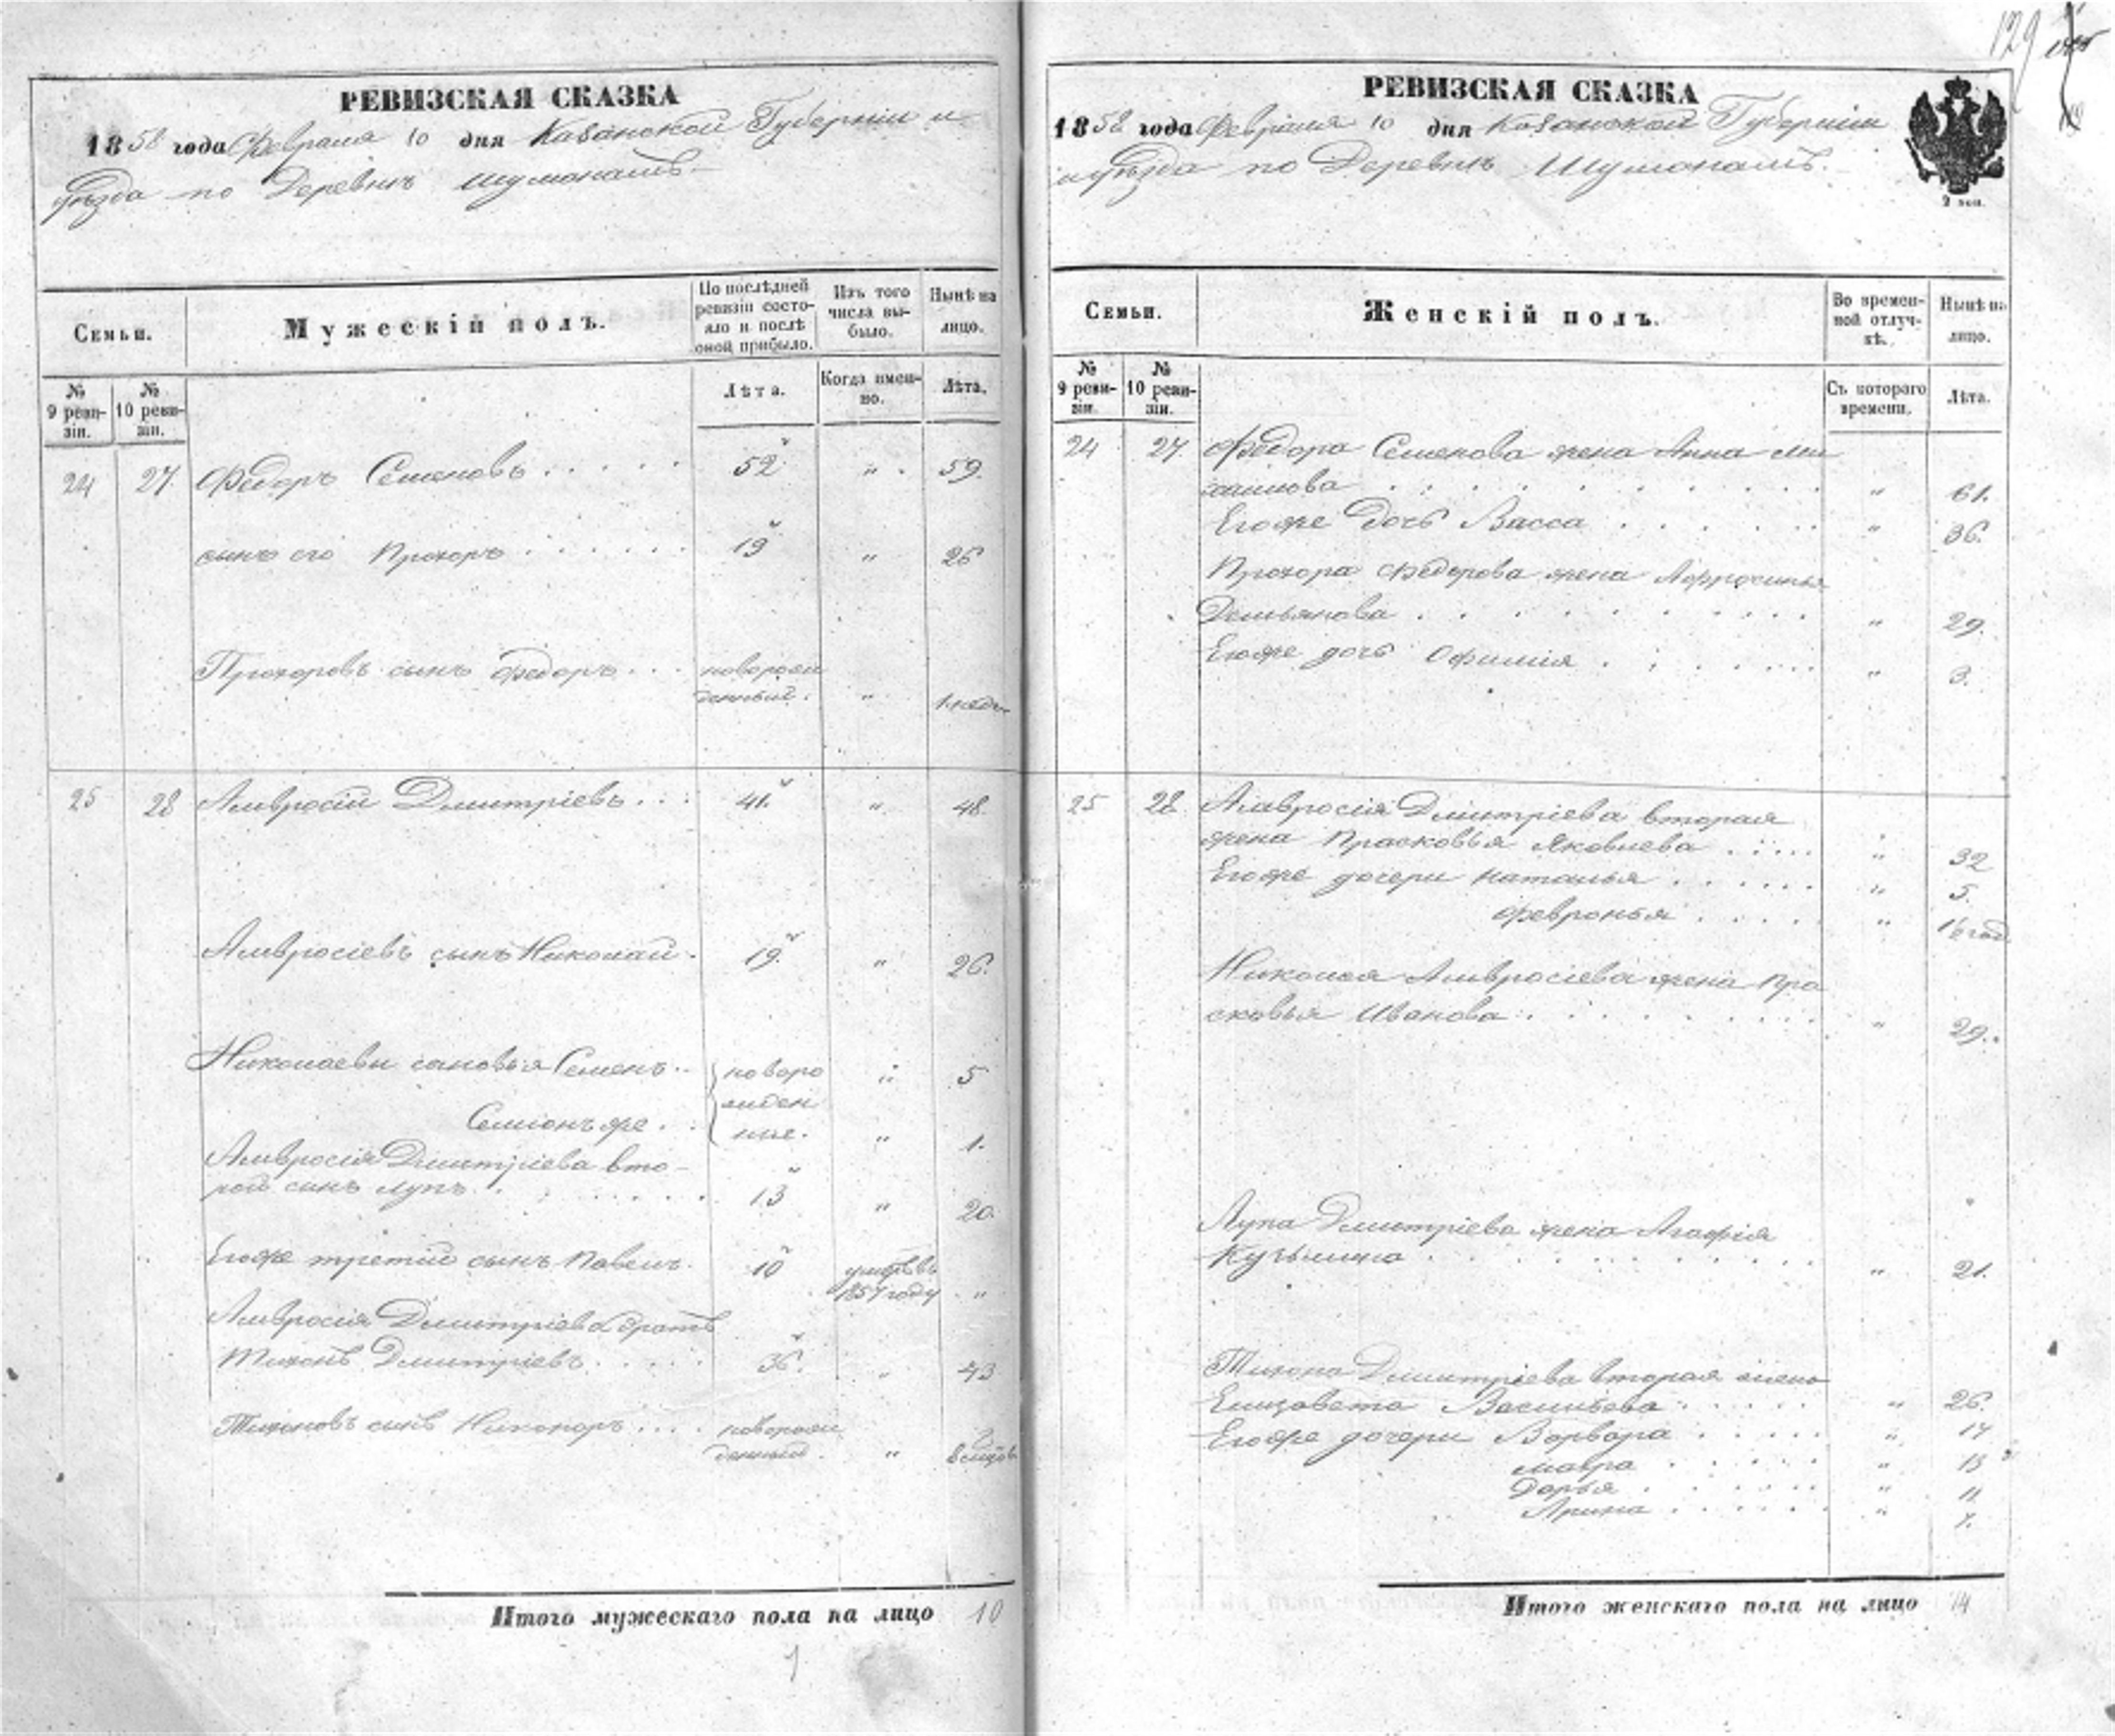 РЕВИЗСКАЯ СКАЗКА
1858 года Февраля 10 дня Казанской Губернiи и
уѣзда по Деревнѣ
Семьи.
Мужескій полъ.
По послѣдней ревизіи состояло и послѣ оной прибыло.
Изъ того числа выбыло.
Нынѣ на лицо.
№ 9 ревизіи.
№ 10 ревизіи.
Лѣта.
Когда именно.
Лѣта.
24 27 Федоръ Семеновъ 52 " 59.
сынъ его Прохоръ 19 " 26
Прохоровъ сынъ Федоръ новорож
денный. "
25 28 Амвросiй Дмитрiевъ 41 " 48.
Амвросiевъ сынъ Николай 19. " 26.
Николаевы сыновья Семенъ новоро " 5
жден
Семiонъ же ные. " 1.
Амвросiя Дмитрiева вто-
рой сынъ Лупъ 13 " 20.
Егоже третiй сынъ Павелъ 10 умеръ въ
1857 году "
Амвросiя Дмитрiева братъ
Тихонъ Дмитрiевъ 36. " 43
Тихоновъ сынъ Никоноръ новорож
денный "
Итого мужескаго пола на лицо 10
1
129
РЕВИЗСКАЯ СКАЗКА
1858 года Февраля 10 дня Казанской Губернiи
и уѣзда по Деревнѣ
2 коп.
Семьи.
Женскій полъ.
Во временной отлучкѣ.
Нынѣ на лицо.
№ 9 ревизіи.
№ 10 ревизіи.
Съ котораго времени.
Лѣта.
24 27 Федора Семенова жена Анна Ми
хаилова " 61.
Егоже дочь Васса " 36.
Прохора Федорова жена Афросинья
Демьянова " 29.
Егоже дочь Офимiя " 3.
25 28 Амвросiя Дмитрiева вторая
жена Прасковья Яковлева " 32
Егоже дочери Наталья " 5.
Февронья "
Николая Амвросiева жена Пра
сковья Иванова " 29.
Лупа Дмитрiева жена Агафiя
Кузьмина " 21.
Тихона Дмитрiева вторая жена
Елизавета Васильева " 26.
Егоже дочери Варвара " 17
Мавра " 13
Дарья " 11
Арина " 7.
Итого женскаго пола на лицо 14